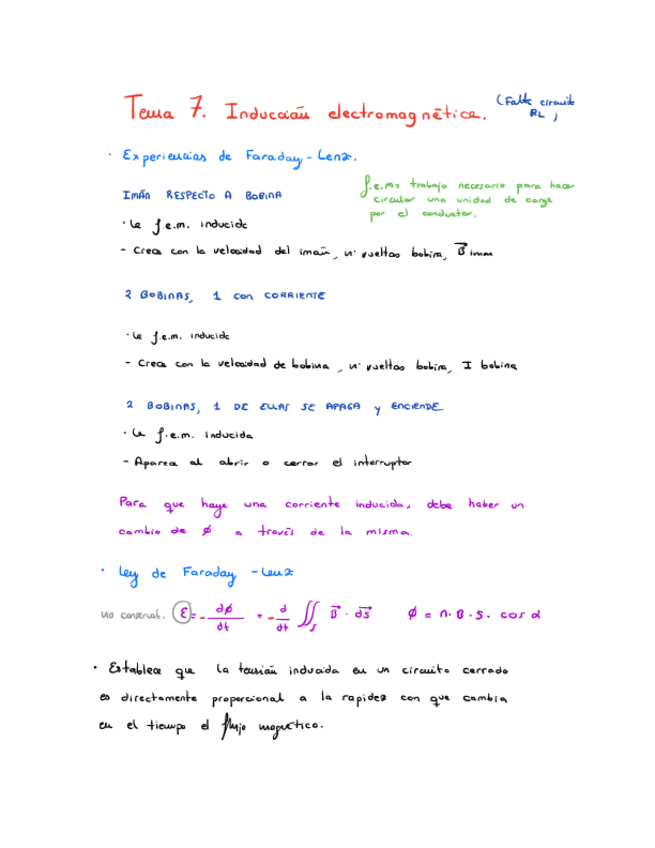 Tema 7. Inducción electromagnética. (Falta circuito RL)
· Experiencias de Faraday-Lenz.
f.e.m= trabajo necesario para hacer
circular una unidad de carga
por el conductor.
IMÁN RESPECTO A BOBINA
· La f.e.m. inducida
- Crece con la velocidad del imán, nº vueltas bobina, B imán
2 BOBINAS, 1 CON CORRIENTE
· La f.e.m. inducida
- Crece con la velocidad de bobina, nº vueltas bobina, I bobina
2 BOBINAS, 1 DE ELLAS SE APAGA y ENCIENDE
· La f.e.m. inducida
- Aparece al abrir o cerrar el interruptor
Para que haya una corriente inducida, debe haber un
cambio de ϕ a través de la misma.
· Ley de Faraday - Lenz
no conservat. ε = - dϕ/dt = - d/dt ∬_S B⃗ · dS⃗ ϕ = n · B · S · cos α
· Establece que la tensión inducida en un circuito cerrado
es directamente proporcional a la rapidez con que cambia
en el tiempo el flujo magnético.